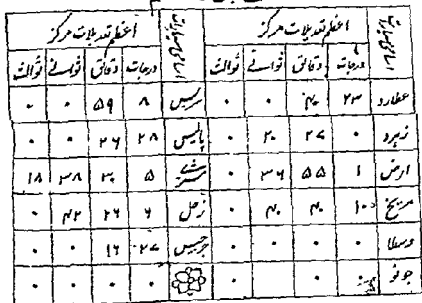 اعظم تعدیلات مرکز اعظم تعدیلات مرکز
درجات دقائق ثوانے ثوالث درجات دقائق ثوانے ثوالث
عطارد ۲۳ ۴۰ ۰ ۰ سرس ۸ ۵۹ ۰ ۰
زہرہ ۰ ۴۷ ۲۰ ۰ پالس ۲۸ ۲۶ ۰ ۰
ارض ۱ ۵۵ ۳۶ ۰ مشترے ۵ ۳۰ ۳۸ ۱۸
مریخ ۱۰ ۴۰ ۴۰ ۰ زحل ۶ ۲۶ ۴۲ ۰
وسطا ۰ ۰ ۰ ۰ جرجیس ۲۷ ۱۶ ۰ ۰
جونو ۰ ۰ ۰ ۰ ۰ ۰ ۰